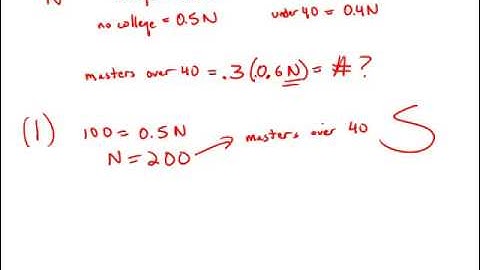 N
no college = 0.5N under 40 = 0.4N
masters over 40 = .3(0.6N) = # ?
(1) 100 = 0.5N
N = 200 → masters over 40 S